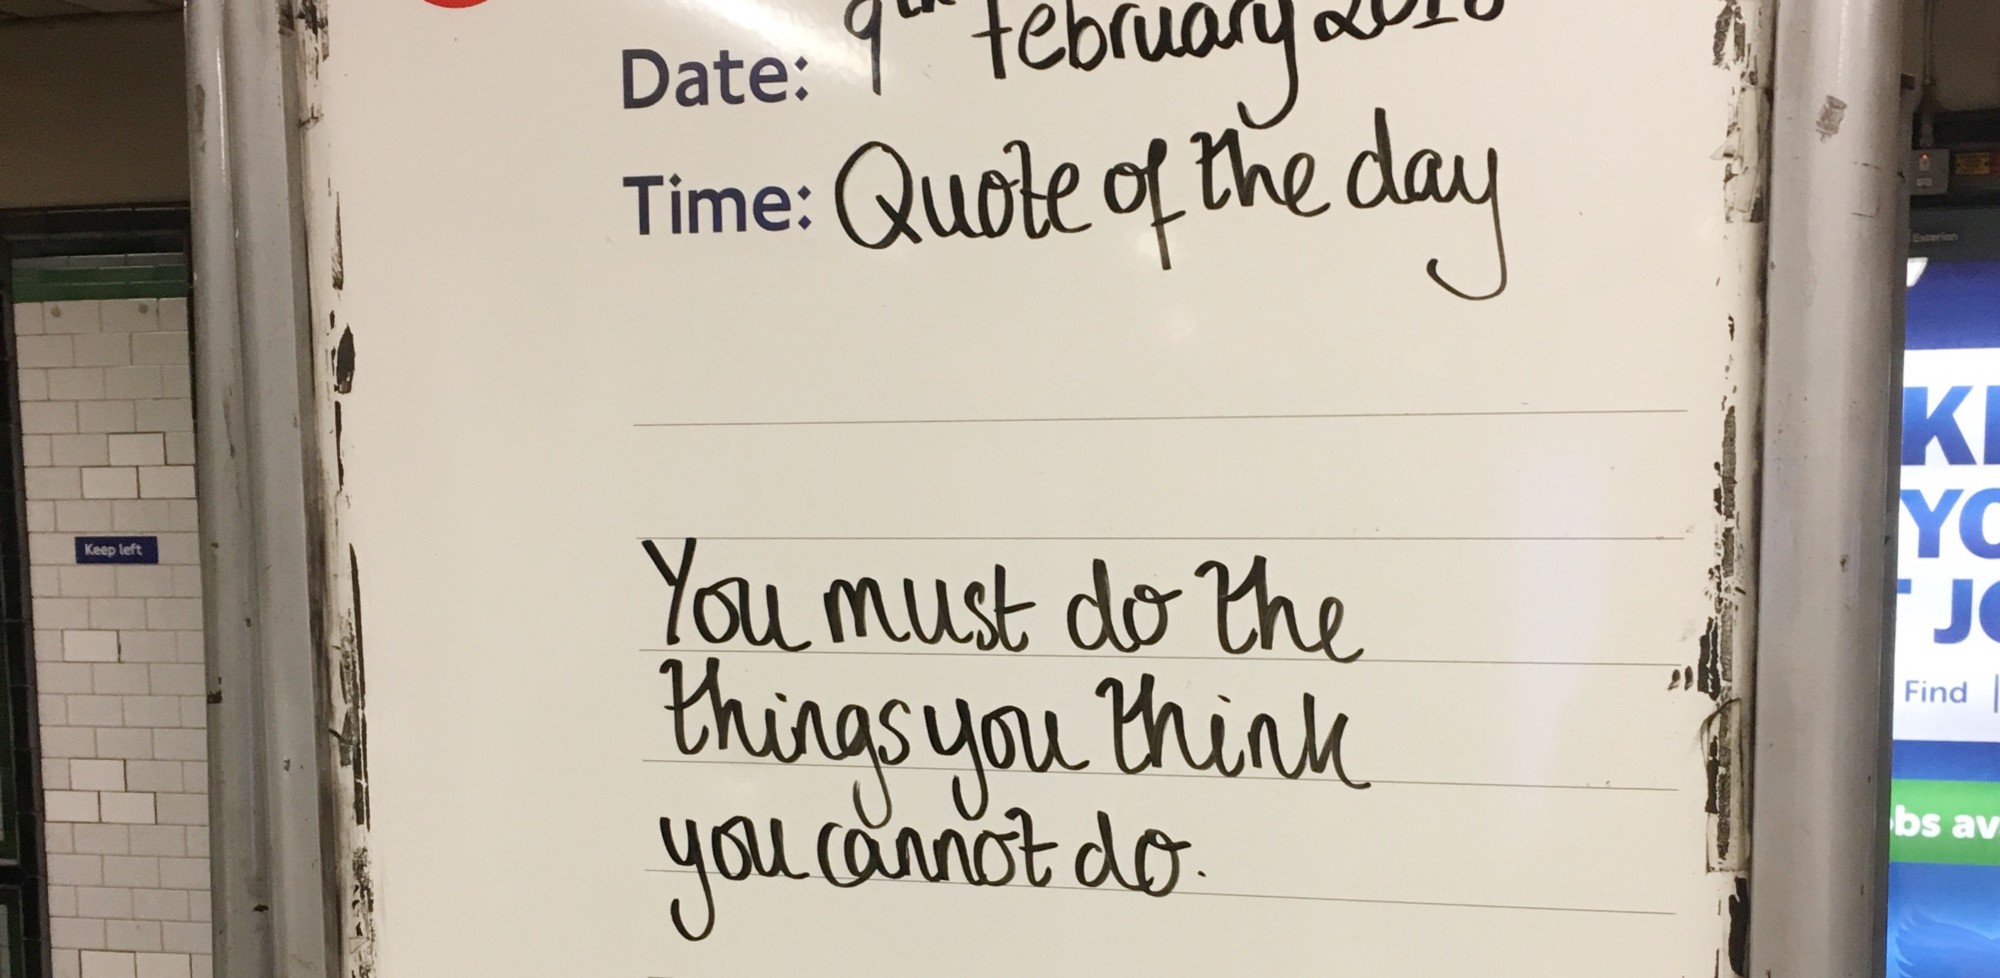 Date: 9th February 2018
Time: Quote of the day
You must do the
things you think
you cannot do.
Keep left
Exterion
Find